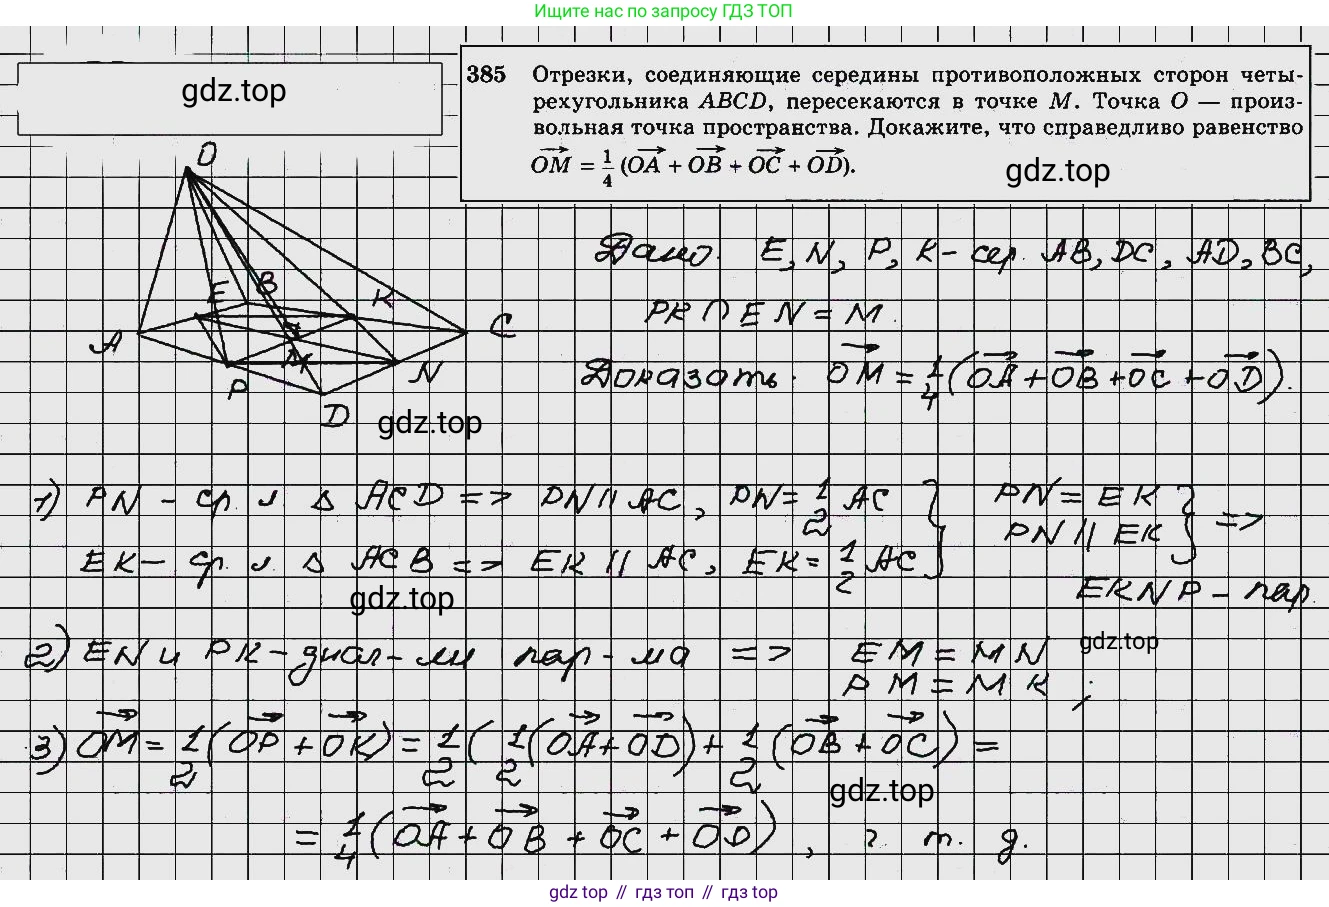 Ищите нас по запросу ГДЗ ТОП
gdz.top
385 Отрезки, соединяющие середины противоположных сторон четы-
рехугольника ABCD, пересекаются в точке M. Точка O — произ-
вольная точка пространства. Докажите, что справедливо равенство
OM = 1/4 (OA + OB + OC + OD).
gdz.top
O
E B K
A M C
P N
D
gdz.top
Дано: E, N, P, K - сер. AB, DC, AD, BC,
PK ∩ EN = M.
Доказать: OM = 1/4 (OA + OB + OC + OD).
1) PN - ср. л. Δ ACD => PN || AC, PN = 1/2 AC } PN = EK
EK - ср. л. Δ ACB => EK || AC, EK = 1/2 AC } PN || EK } =>
gdz.top
EKNP - пар.
2) EN и PK - диал-ли пар-ма => EM = MN
PM = MK ;
gdz.top
3) OM = 1/2 (OP + OK) = 1/2 ( 1/2 (OA + OD) + 1/2 (OB + OC) =
gdz.top
= 1/4 (OA + OB + OC + OD) , ч т. д.
gdz top // гдз топ // гдз top